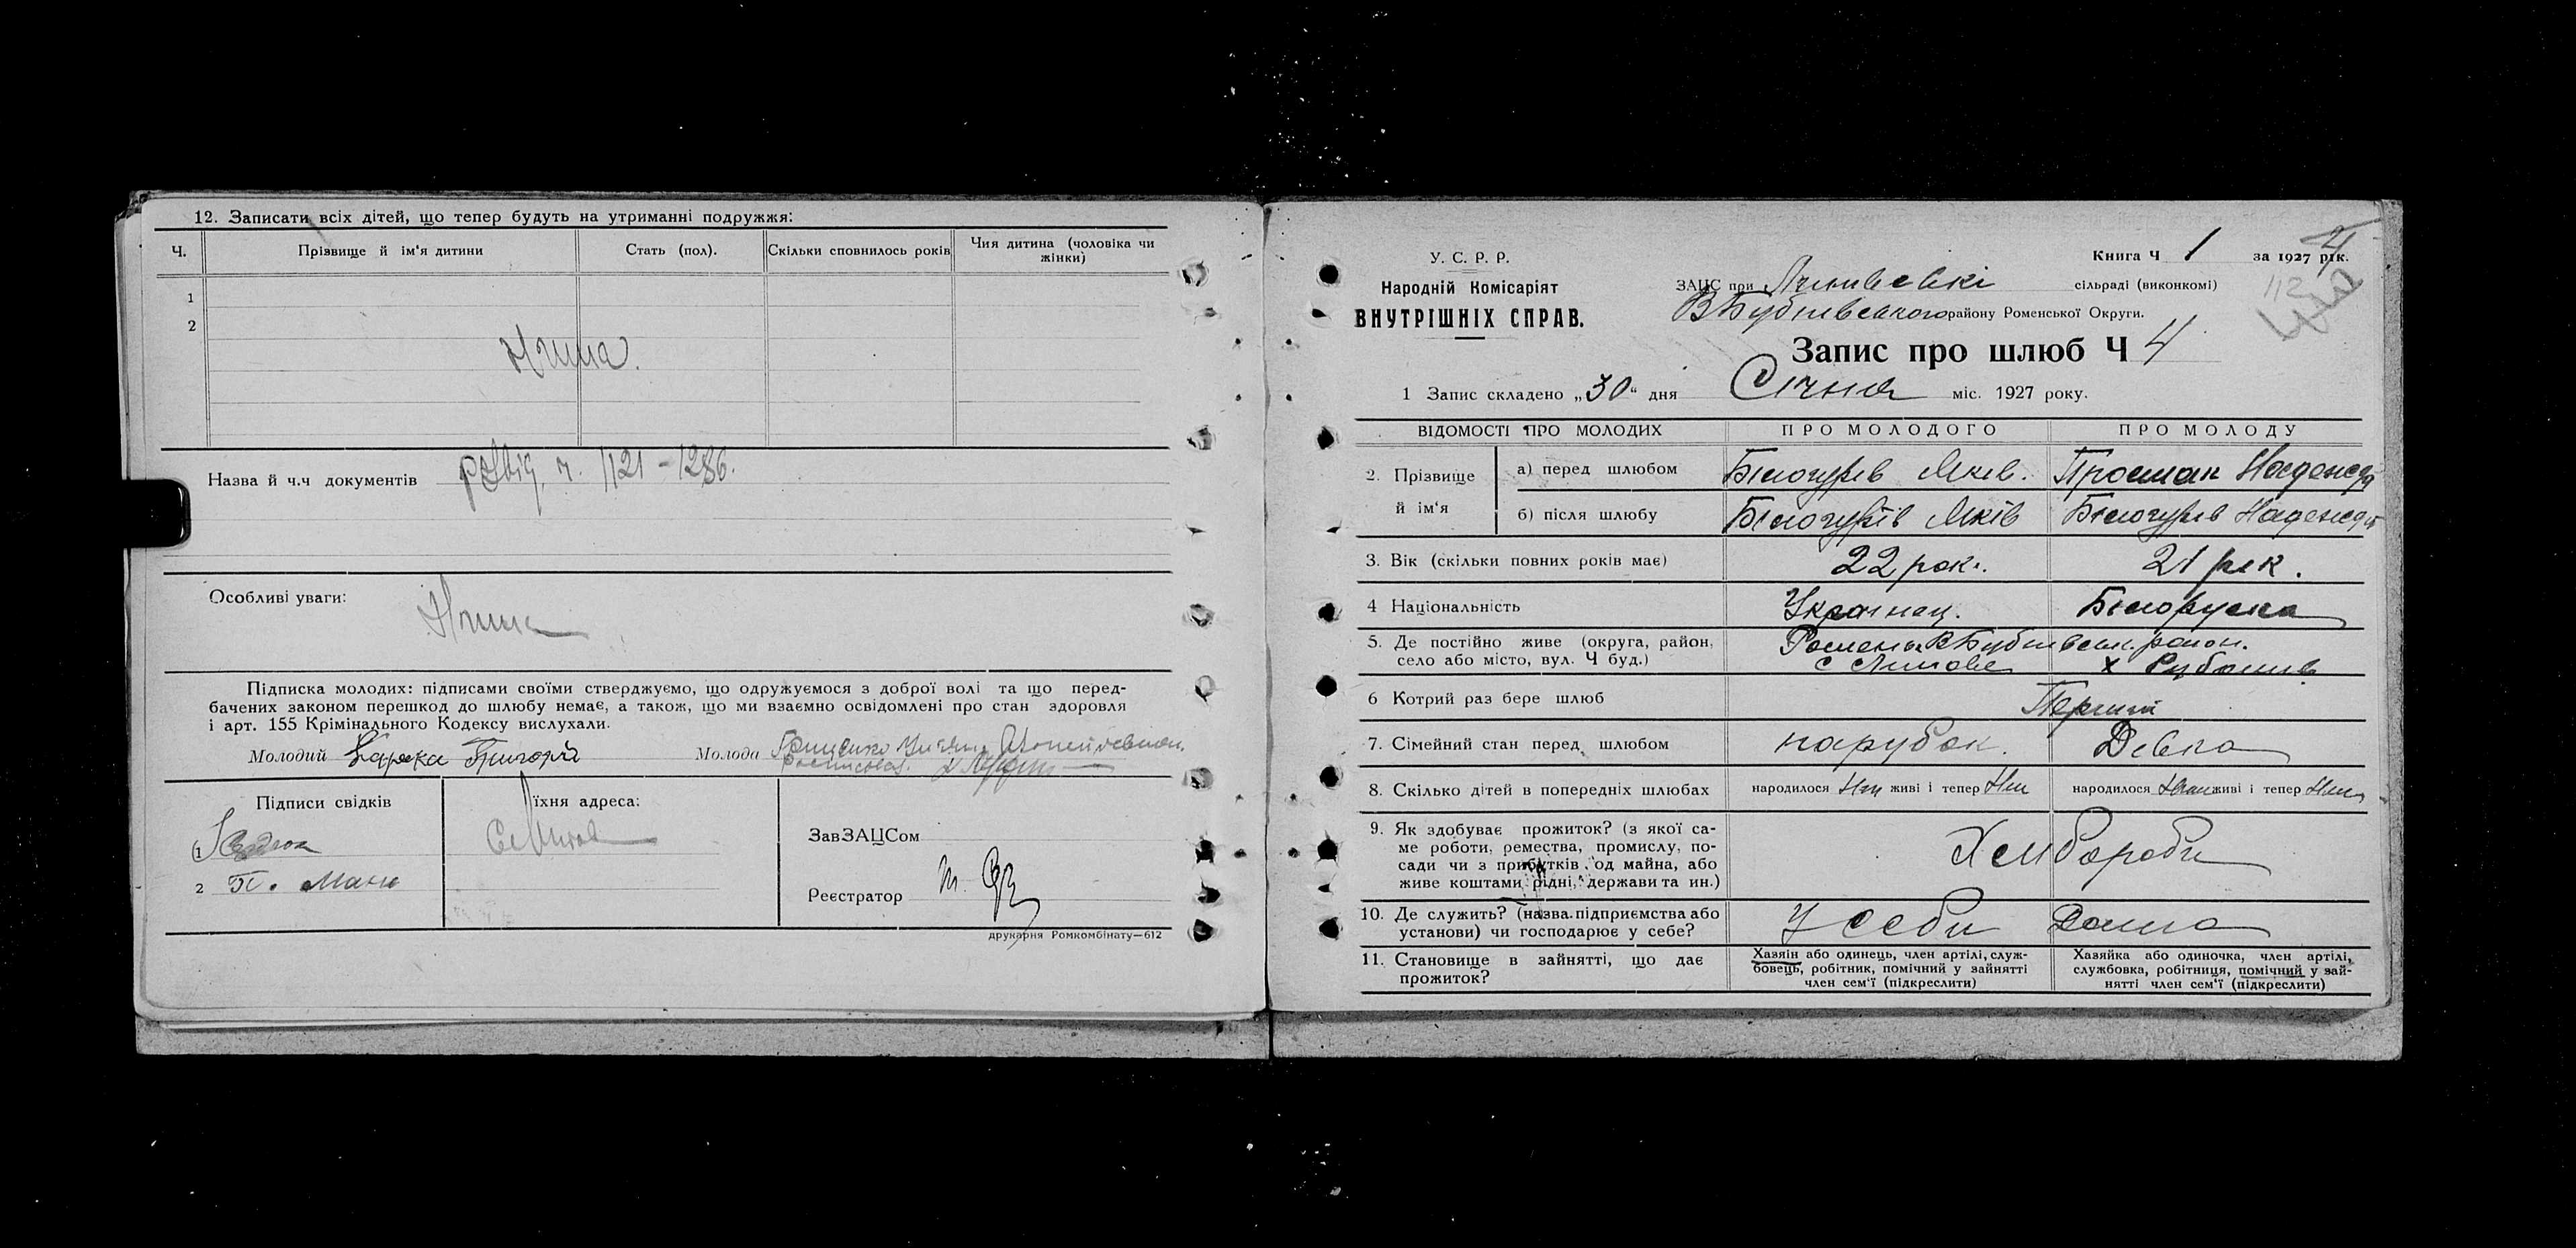 12. Записати всіх дітей, що тепер будуть на утриманні подружжя:
Ч. Прізвище й ім'я дитини Стать (пол). Скільки сповнилось років Чия дитина (чоловіка чи жінки)
1
2
Нима.
Назва й ч.ч документів 1121-1286.
Особливі уваги:
Підписка молодих: підписами своїми стверджуємо, що одружуємося з доброї волі та що перед-
бачених законом перешкод до шлюбу немає, а також, що ми взаємно освідомлені про стан здоровля
і арт. 155 Крімінального Кодексу вислухали.
Молодий Григорій Молода
Підписи свідків їхня адреса:
1
2
ЗавЗАЦСом
Реєстратор
друкарня Ромкомбінату—612
У. С. Р. Р.
Народній Комісаріят
ВНУТРІШНІХ СПРАВ.
Книга Ч 1 за 1927 рік.
4
112
ЗАЦС при сільраді (виконкомі)
району Роменської Округи.
Запис про шлюб Ч 4
1 Запис складено „30" дня Січня міс. 1927 року.
ВІДОМОСТІ ПРО МОЛОДИХ ПРО МОЛОДОГО ПРО МОЛОДУ
2. Прізвище й ім'я
а) перед шлюбом Білогурів Яків. Надежда
б) після шлюбу Білогурів Яків Білогурів Надежда
3. Вік (скільки повних років має) 22 рок. 21 рік.
4 Національність Українец. Білоруска
5. Де постійно живе (округа, район, село або місто, вул. Ч буд.) район.
6 Котрий раз бере шлюб Перший
7. Сімейний стан перед шлюбом парубок. Девка
8. Скілько дітей в попередніх шлюбах народилося живі і тепер народилося живі і тепер
9. Як здобуває прожиток? (з якої са-
ме роботи, ремества, промислу, по-
сади чи з прибутків од майна, або
живе коштами рідні, держави та ин.) Хліборобы
10. Де служить? (назва підприємства або
установи) чи господарює у себе? У себи Дома
11. Становище в зайнятті, що дає
прожиток?
Хазяін або одинець, член артілі, служ-
бовець, робітник, помічний у зайнятті
член сем'ї (підкреслити)
Хазяйка або одиночка, член артілі,
службовка, робітниця, помічний у зай-
нятті член сем'ї (підкреслити)